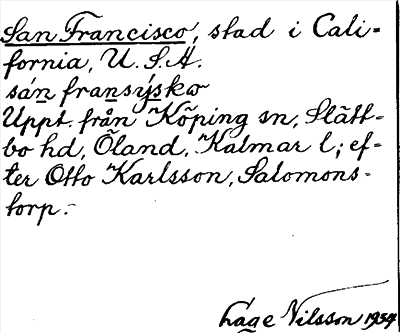 San Francisco, stad i Cali-
fornia, U.S.A.
sán fransýsko
Uppt. från Köping sn, Slätt-
bo hd, Öland, Kalmar l; ef-
ter Otto Karlsson, Salomons-
torp.-
Låge Nilsson 1934